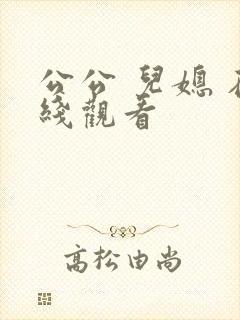 公公 兒媳 在
綫觀看
高松由尚